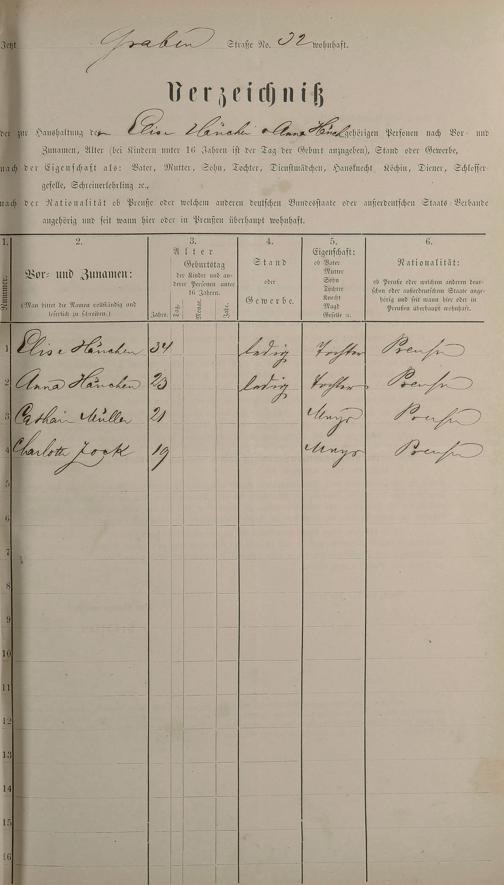 Jetzt Graben Straße No. 32 wohnhaft.
Verzeichniß
der zur Haushaltung der Elise Hänchen & Anna Hänch gehörigen Personen nach Vor- und
Zunamen, Alter (bei Kindern unter 16 Jahren ist der Tag der Geburt anzugeben), Stand oder Gewerbe,
nach der Eigenschaft als: Vater, Mutter, Sohn, Tochter, Dienstmädchen, Hausknecht Köchin, Diener, Schlosser-
geselle, Schreinerlehrling ꝛc.,
nach der Nationalität ob Preuße oder welchem anderen deutschen Bundesstaate oder außerdeutschen Staats-Verbande
angehörig und seit wann hier oder in Preußen überhaupt wohnhaft.
1. 2. 3. 4. 5. 6.
Nummer.
Vor- und Zunamen:
(Man bittet die Namen vollständig und
leserlich zu schreiben.)
Alter
Geburtstag
der Kinder und an-
derer Personen unter
16 Jahren.
Jahre. Tag. Monat. Jahr.
Stand
oder
Gewerbe.
Eigenschaft:
ob Vater
Mutter
Sohn
Tochter
Knecht
Magd
Geselle ꝛc.
Nationalität:
ob Preuße oder welchem anderen deut-
schen oder außerdeutschen Staate ange-
hörig und seit wann hier oder in
Preußen überhaupt wohnhaft.
1 Elise Hänchen 34 ledig Tochter Preußen
2 Anna Hänchen 23 ledig Tochter Preußen
3 Cathari Müller 21 Magd Preußen
4 Charlotte Jock 19 Magd Preußen
5
6
7
8
9
10
11
12
13
14
15
16